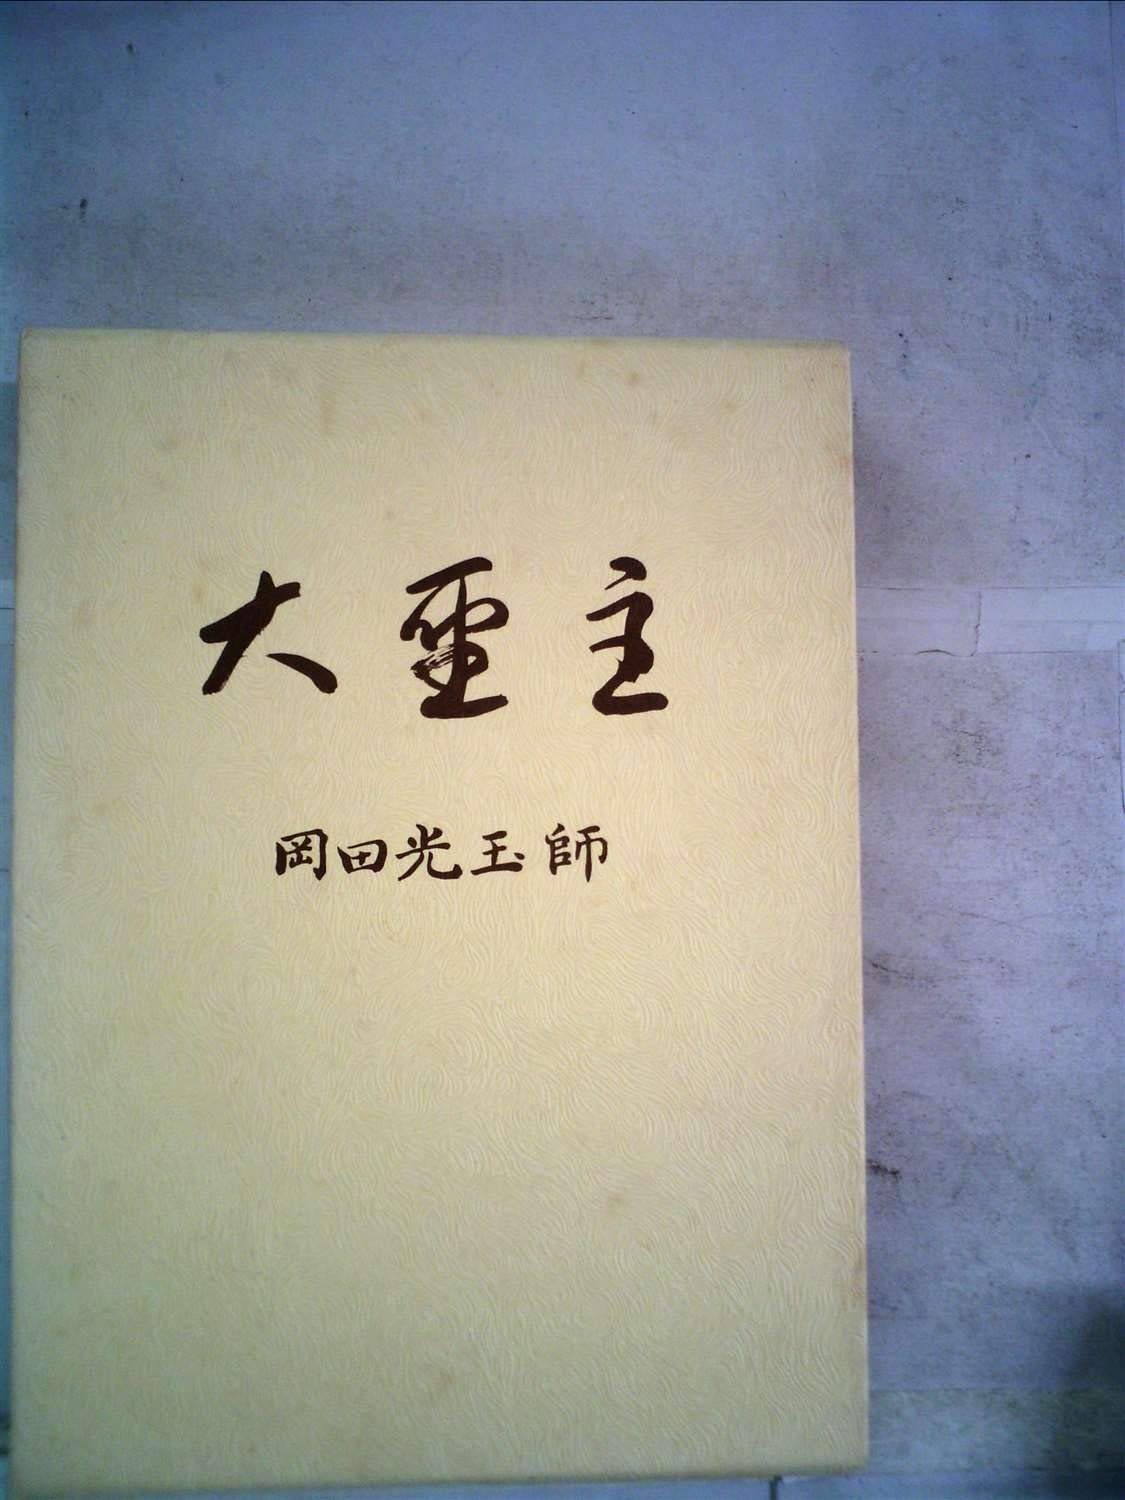 大聖主
岡田光玉師